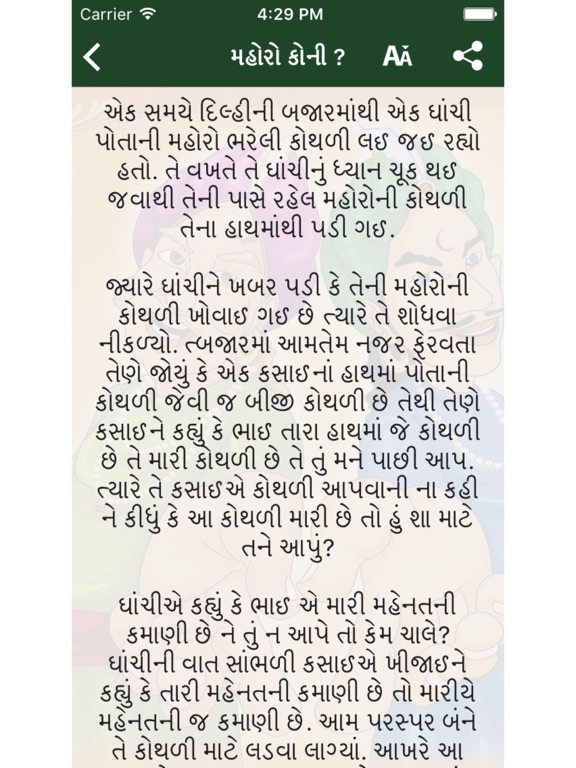 Carrier 4:29 PM
મહોરો કોની ? AA
એક સમયે દિલ્હીની બજારમાંથી એક ઘાંચી
પોતાની મહોરો ભરેલી કોથળી લઇ જઇ રહ્યો
હતો. તે વખતે તે ઘાંચીનું ધ્યાન ચૂક થઇ
જવાથી તેની પાસે રહેલ મહોરોની કોથળી
તેના હાથમાંથી પડી ગઇ.
જ્યારે ઘાંચીને ખબર પડી કે તેની મહોરોની
કોથળી ખોવાઇ ગઇ છે ત્યારે તે શોધવા
નીકળ્યો. ત્બજારમાં આમતેમ નજર ફેરવતા
તેણે જોયું કે એક કસાઇનાં હાથમાં પોતાની
કોથળી જેવી જ બીજી કોથળી છે તેથી તેણે
કસાઇને કહ્યું કે ભાઇ તારા હાથમાં જે કોથળી
છે તે મારી કોથળી છે તે તું મને પાછી આપ.
ત્યારે તે કસાઇએ કોથળી આપવાની ના કહી
ને કીધું કે આ કોથળી મારી છે તો હું શા માટે
તને આપું?
ઘાંચીએ કહ્યું કે ભાઇ એ મારી મહેનતની
કમાણી છે ને તું ન આપે તો કેમ ચાલે?
ઘાંચીની વાત સાંભળી કસાઇએ ખીજાઇને
કહ્યું કે તારી મહેનતની કમાણી છે તો મારીયે
મહેનતની જ કમાણી છે. આમ પરસ્પર બંને
તે કોથળી માટે લડવા લાગ્યાં. આખરે આ